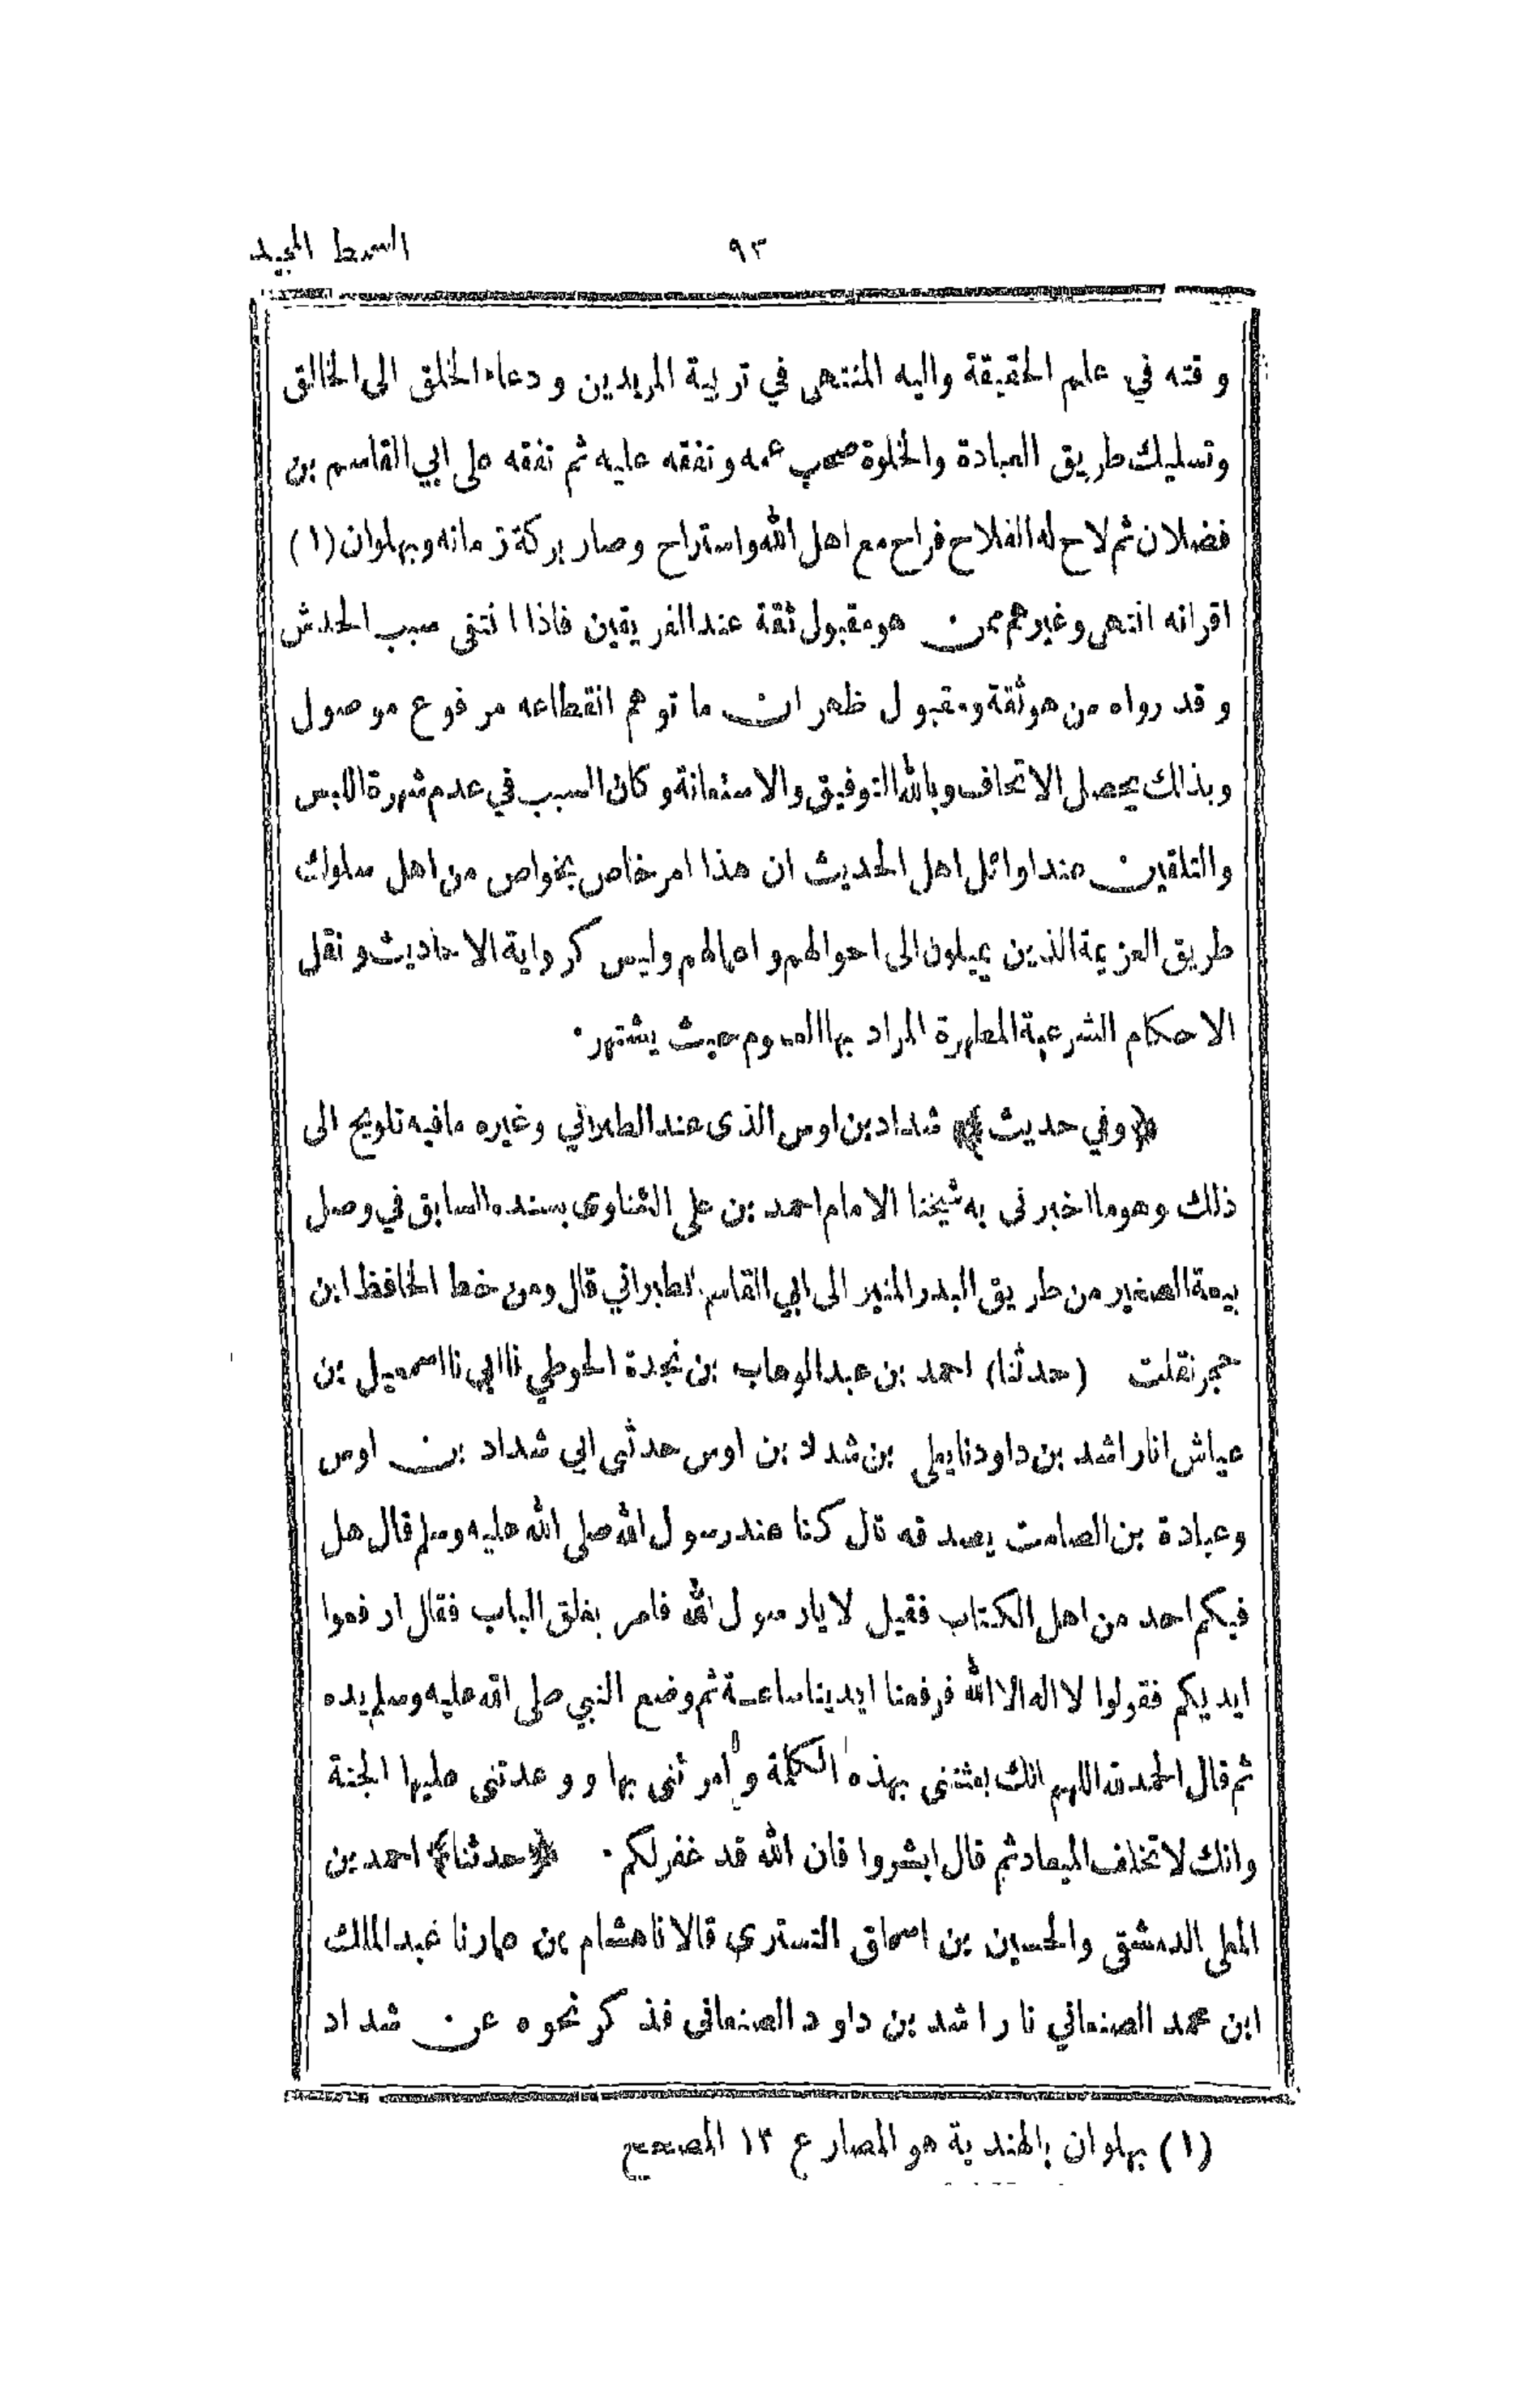 السمط المجيد
٩٣
وقته في علم الحقيقة واليه المنتهى في تربية المريدين ودعاء الخلق الى الخالق
وتسليك طريق العبادة والخلوة صحب عمه وتفقه عليه ثم تفقه على ابي القاسم بن
فضلان ثم لاح له الفلاح فراح مع اهل الله واستراح وصار بركة زمانه وبهلوان (١)
اقرانه انتهى وغيرهم ممن هو مقبول ثقة عند الفريقين فاذا انتفى سبب الخدش
وقد رواه من هو ثقة ومقبول ظهر ان ما توهم انقطاعه مرفوع موصول
وبذلك يحصل الاتحاف وبالله التوفيق والاستعانة وكان السبب في عدم شهرة اللبس
والتلقين عند اوائل اهل الحديث ان هذا امر خاص بخواص من اهل سلوك
طريق العزيمة الذين يميلون الى احوالهم واعمالهم وليس كرواية الاحاديث ونقل
الاحكام الشرعية المطهرة المراد بها العموم حيث يشتهر ٠
﴿وفي حديث﴾ شداد بن اوس الذى عند الطبراني وغيره ما فيه تلويح الى
ذلك وهو ما اخبرنى به شيخنا الامام احمد بن على الشناوى بسنده السابق في وصل
بيعة الصغير من طريق البدر المنير الى ابي القاسم الطبراني قال ومن خط الحافظ ابن
حجر نقلت (حدثنا) احمد بن عبد الوهاب بن نجدة الحوطي نا ابي نا اسمعيل بن
عياش انا راشد بن داود نا يعلى بن شداد بن اوس حدثنى ابي شداد بن اوس
وعبادة بن الصامت يصدقه قال كنا عند رسول الله صلى الله عليه وسلم قال هل
فيكم احد من اهل الكتاب فقيل لا يا رسول الله فامر بغلق الباب فقال ارفعوا
ايديكم فقولوا لا اله الا الله فرفعنا ايدينا ساعة ثم وضع النبي صلى الله عليه وسلم يده
ثم قال الحمد لله اللهم انك بعثتنى بهذه الكلمة وأمرتنى بها ووعدتنى عليها الجنة
وانك لا تخلف الميعاد ثم قال ابشروا فان الله قد غفر لكم ٠ ﴿حدثنا﴾ احمد بن
المعلى الدمشقي والحسين بن اسحاق التستري قالا نا هشام بن عمار نا عبد الملك
ابن محمد الصنعاني نا راشد بن داود الصنعانى فذكر نحوه عن شداد
(١) بهلوان بالهندية هو المصارع ١٢ المصحح